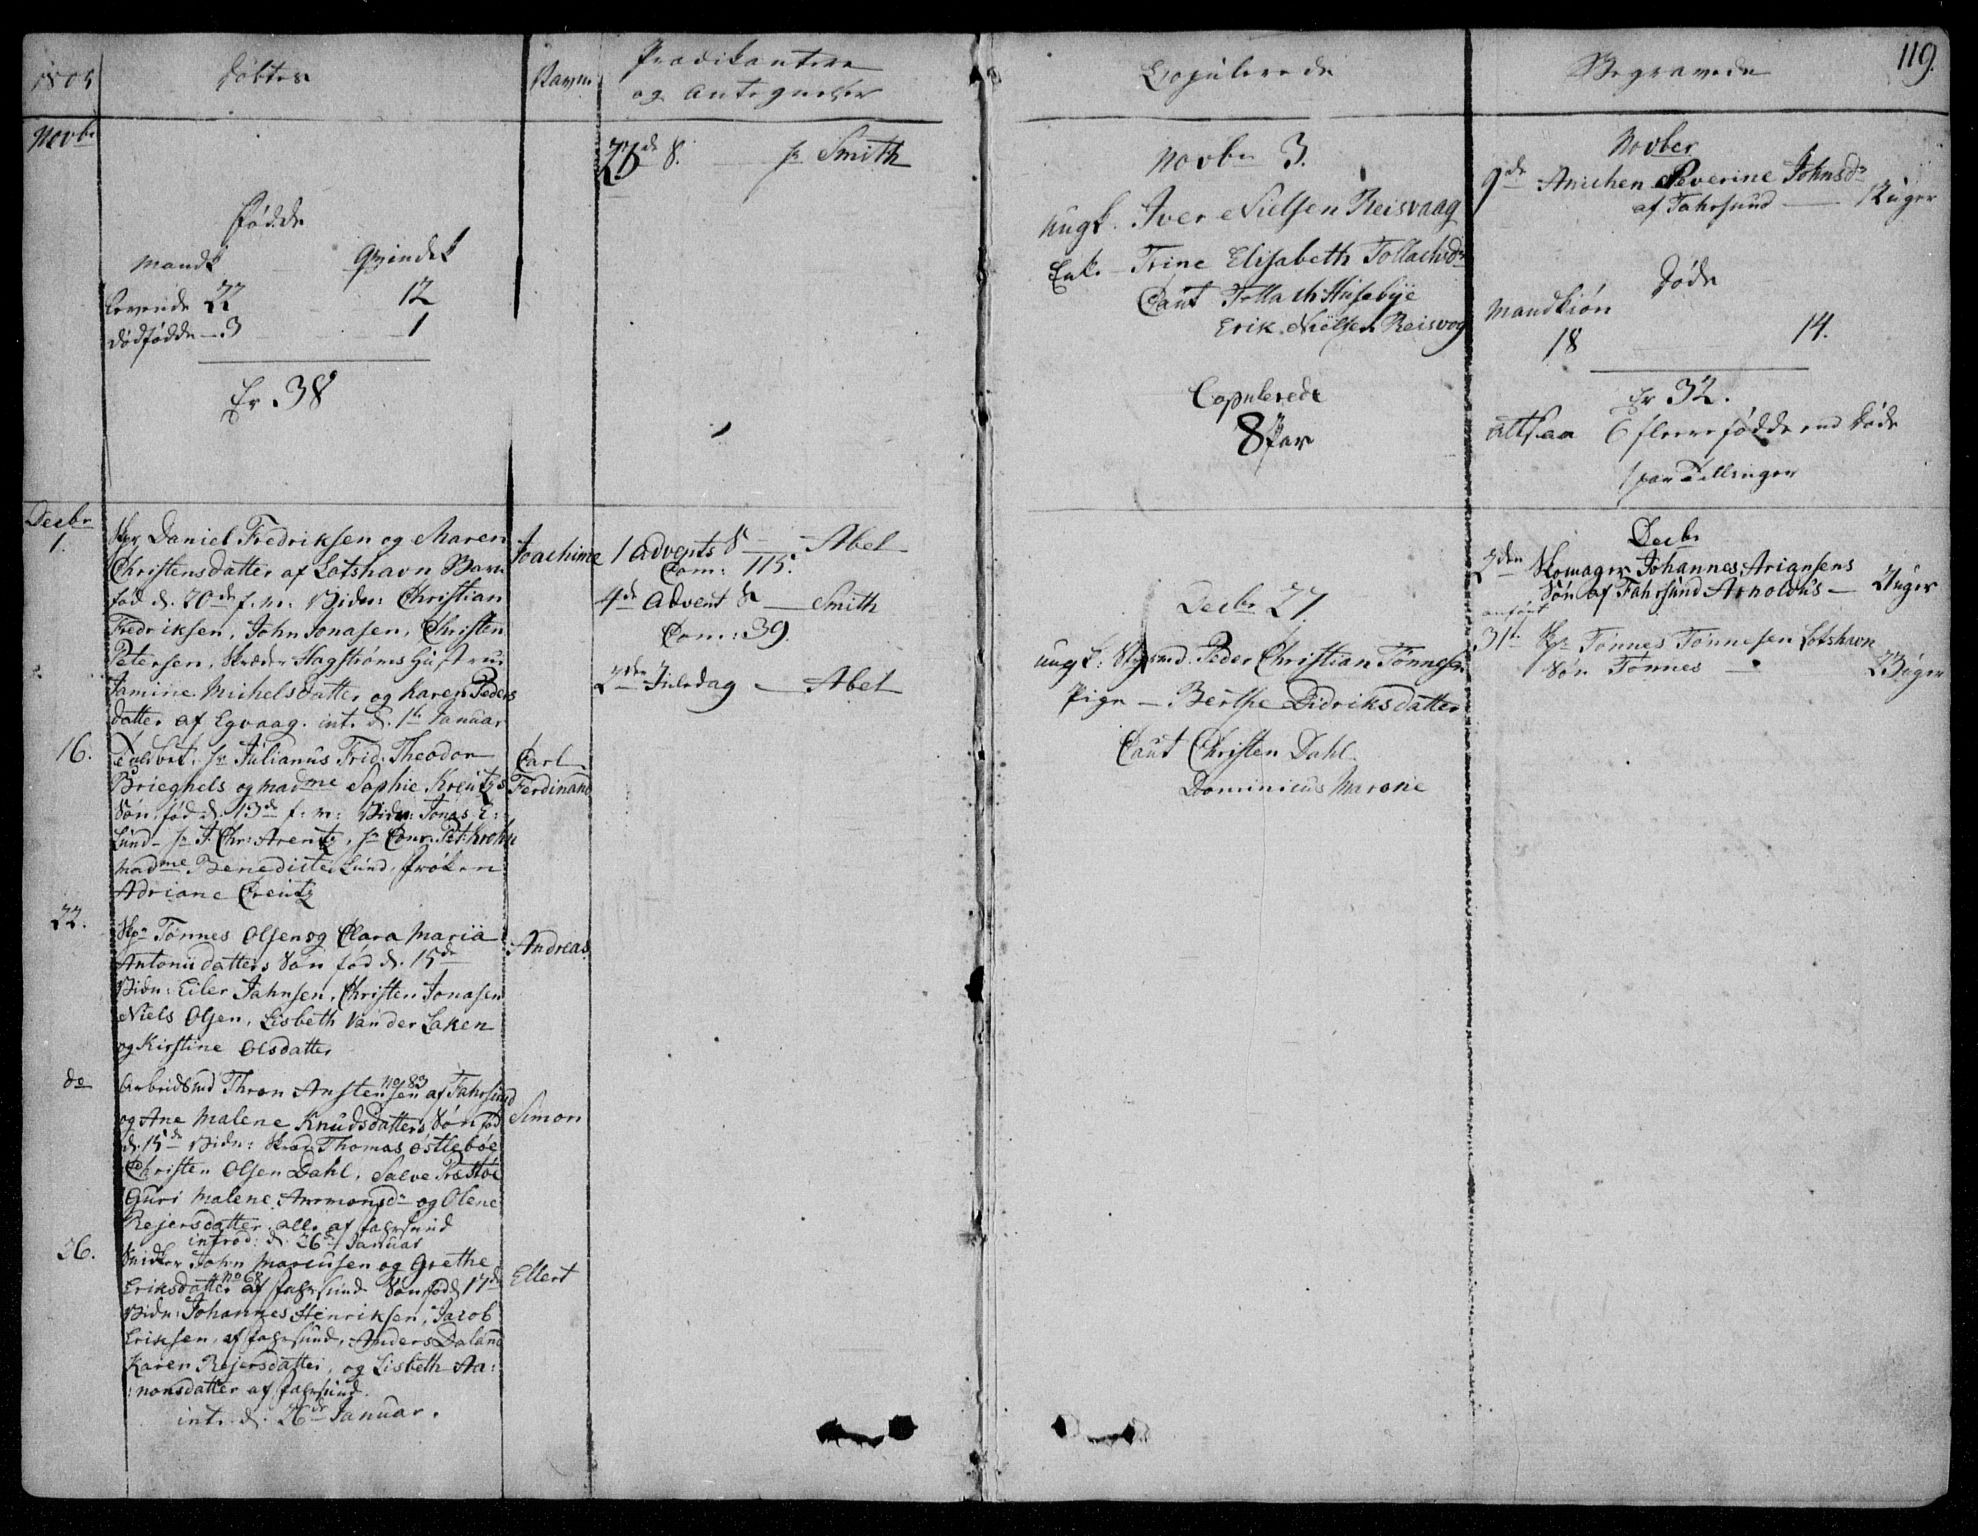 1805
Døbte
Navne
Prædikantere
og Antegnelser
Copulerede
Begravede
119.
Novbr
Fødde
Mandk Qvindek
Levende 22 12
dødfødde 3 1
Er 38
8. hr Smith
Novbr 3.
ungk. Iver Nielsen Reisvaag
Enke Trine Elisabeth Tollachsdr
Caut Tollach Husebye
Erik Nielsen Reisvog
Copulerede
8 Par
Novber
9de Anichen Severine Johnsdr
af Fahrsund Uger
Døde
Mandkiön
18 14.
Er 32.
altsaa 6 fleere fødde end døde
1 par Tvillinger
Decbr
1.
Daniel Fredriksen og Maren
Christensdatter af Lotshavn Barn
fød d. 20de f. m: Vidn: Christian
Fredriksen, John Jonasen, Christen
Petersen, Skræder Hagstrøms Hustrue
Jamine Michelsdatter og Karen Peders
datter af Egvaag. int. d. 1te Januar
Joachime
1 Advents S Abel
Com: 115.
4de Advent S Smith
Com: 39.
2den Juledag Abel
16.
hr Julianus Frid: Theodor
Brieghels og madme Sophie Kreutz's
Søn fød d. 13de f: m: Vidn: Jonas E:
Lund hr J. Chr: Arentz, hr Conr: Pet: Krohn
Madme Benedicte Lund, frøken
Adriane Creutz
Carl
Ferdinand
22.
Tønnes Olsen og Clara Maria
Antonidatters Søn fød d. 15de
Vidn: Eiler Jahnsen, Christen Jonasen
Niels Olsen, Lisbeth Van der Laken
og Kirstine Olsdatter
Andreas
do
Arbeidsmd Thron Anstensen No 83 af Fahrsund
og Ane Malene Knudsdatters Søn fød
d. 15de Vidn: Skræd Thomas Østlebøe
Christen Olsen Dahl, Salve Præstøe
Guri Malene Ammonsdr og Olene
Rejersdatter alle af Fahrsund
introd: d. 26de Januar
Simon
26.
Snidker John Marcusen og Grethe
Eriksdatter No 68 af Fahrsund Søn fød 17de
Vidn: Johannes Henriksen, Jacob
Eriksen, af Fahrsund, Anders Daland
Karen Rejersdatter, og Lisbeth Aa:
:nonsdatter af Fahrsund.
int. d. 26de Januar.
Ellert
Decbr 27.
ungk: Styrmd Peder Christian Tønnesen
Pige Berthe Didriksdatter
Caut Christen Dahl
Dominicus Marone
Decbr
2den Skomager Johannes Arignsens
Søn af Fahrsund Arnoldus Uger
anført
31te Tønnes Tønnesen Lotshavn
Søn Tønnes Uger